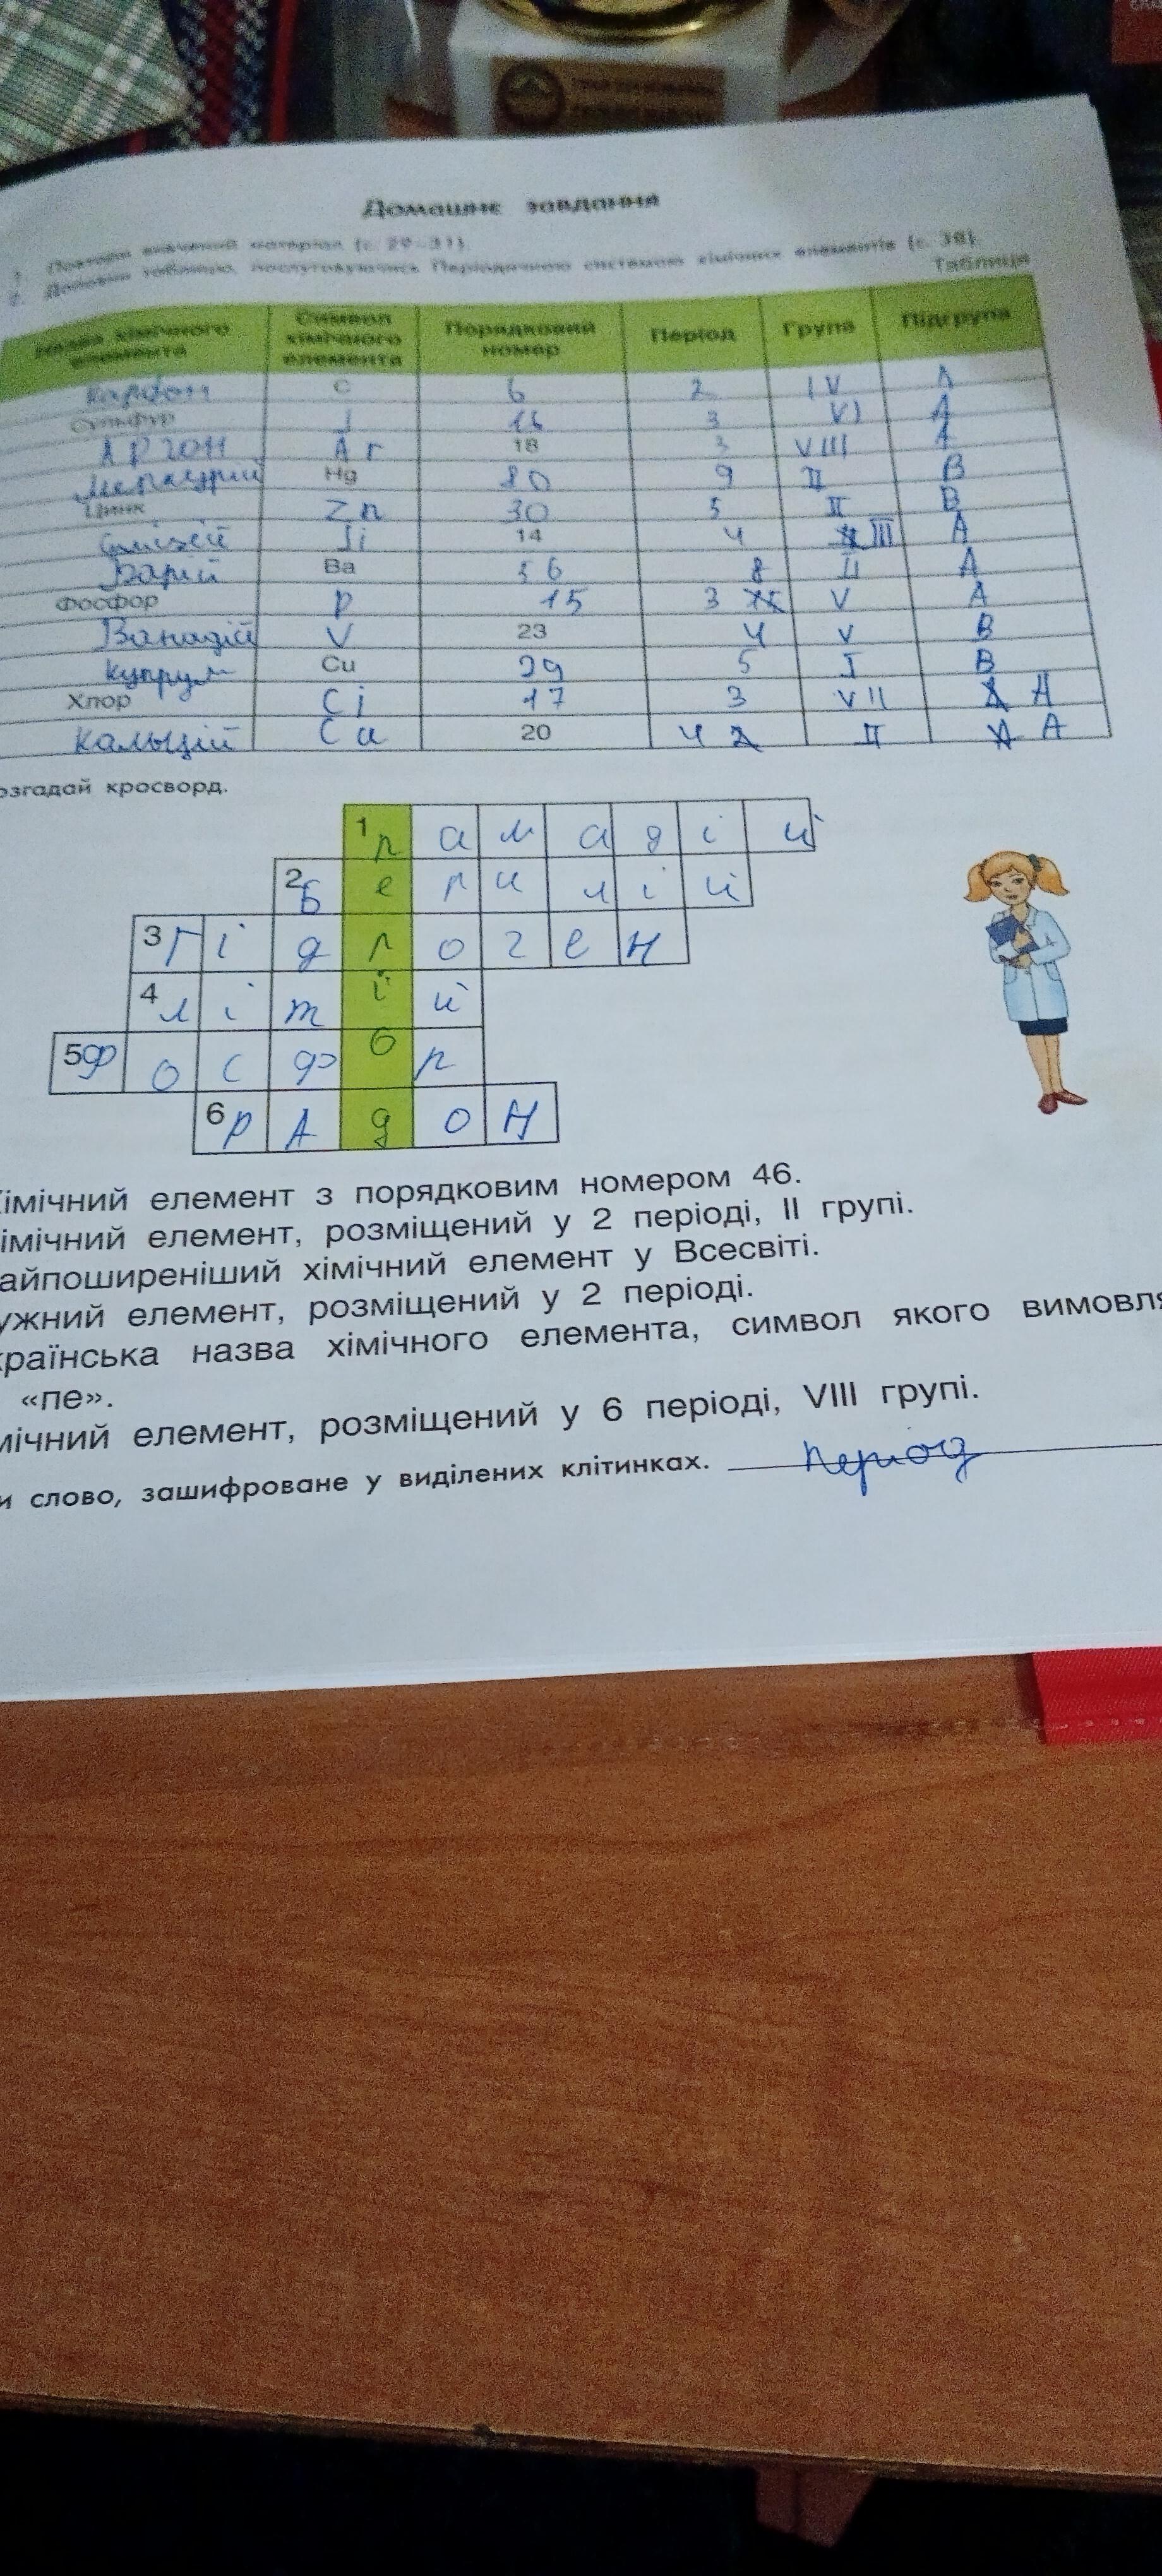 Домашнє завдання
1. Повтори вивчений матеріал (с. 29–31).
2. Доповни таблицю, послуговуючись Періодичною системою хімічних елементів (с. 38).
Таблиця
Назва хімічного елемента Символ хімічного елемента Порядковий номер Період Група Підгрупа
Карбон C 6 2 IV A
Сульфур S 16 3 VI A
Аргон Ar 18 3 VIII A
Меркурій Hg 80 9 II B
Цинк Zn 30 5 II B
Силіцій Si 14 4 III A
Барій Ba 56 8 II A
Фосфор P 15 3 V A
Ванадій V 23 4 V B
Купрум Cu 29 5 I B
Хлор Ci 17 3 VII A
Кальцій Ca 20 4 II A
озгадай кросворд.
1 паладій
2 Берилій
3 Гідроген
4 літій
5 Фосфор
6 РАдОН
імічний елемент з порядковим номером 46.
імічний елемент, розміщений у 2 періоді, II групі.
айпоширеніший хімічний елемент у Всесвіті.
ужний елемент, розміщений у 2 періоді.
країнська назва хімічного елемента, символ якого вимовля
«пе».
мічний елемент, розміщений у 6 періоді, VIII групі.
и слово, зашифроване у виділених клітинках. період